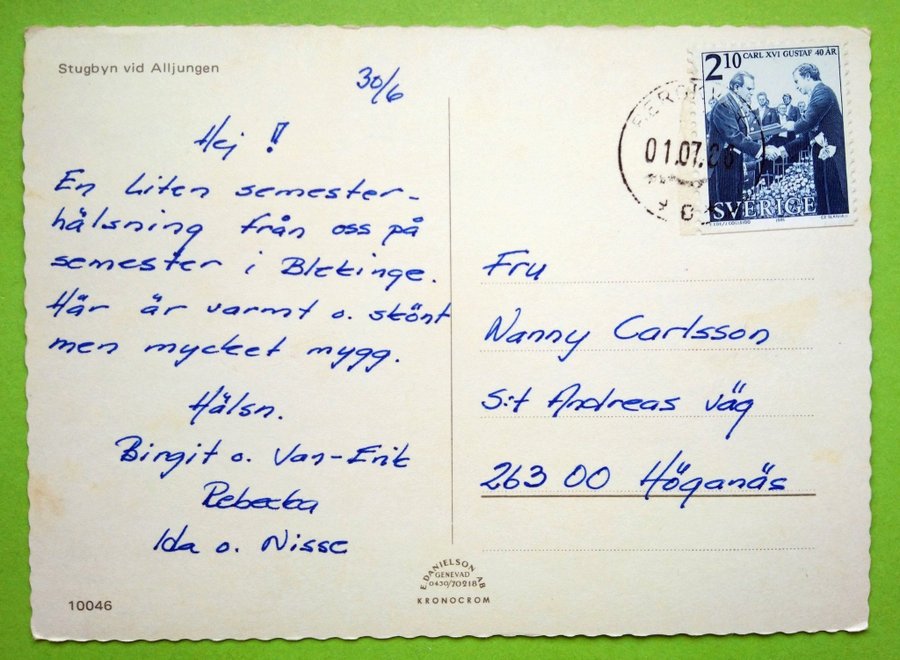 Stugbyn vid Alljungen
30/6
Hej !
En liten semester-
hälsning från oss på
semester i Blekinge.
Här är varmt o. skönt
men mycket mygg.
Hälsn.
Birgit o. Jan-Erik
Rebecka
Ida o. Nisse
10046
E. DANIELSON AB
GENEVAD
0430/70218
KRONOCROM
01.07.
2 10 CARL XVI GUSTAF 40 ÅR
SVERIGE
Fru
Nanny Carlsson
S:t Andreas väg
263 00 Höganäs